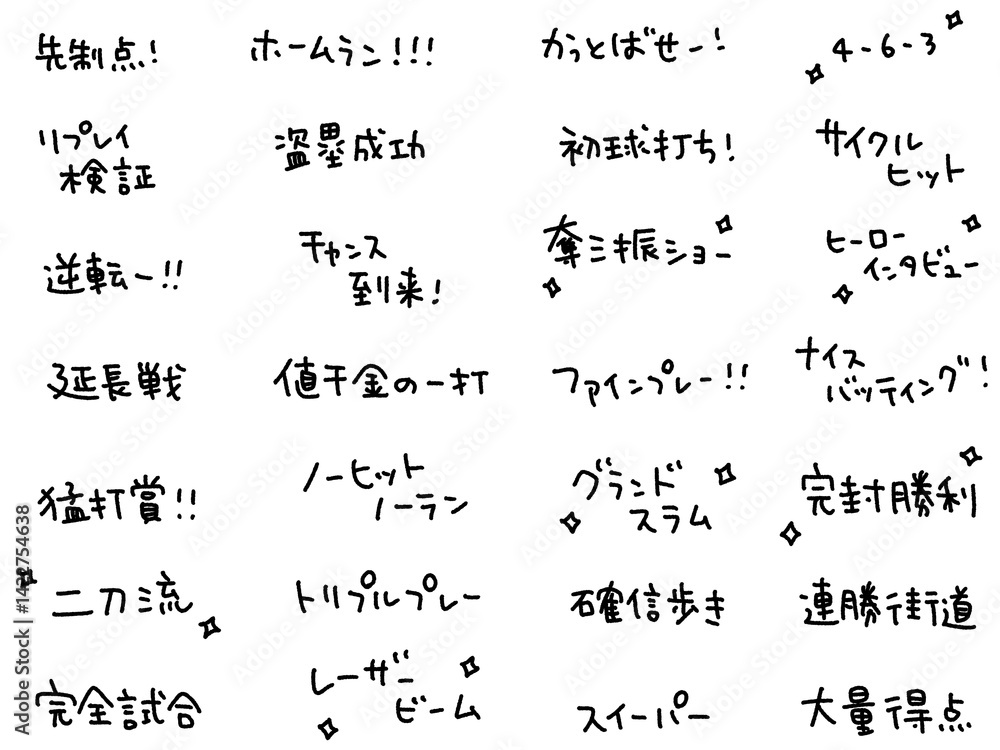 先制点!
ホームラン!!!
かっとばせー!
4-6-3
リプレイ
検証
盗塁成功
初球打ち!
サイクル
ヒット
逆転ー!!
チャンス
到来!
奪三振ショー
ヒーロー
インタビュー
延長戦
値千金の一打
ファインプレー!!
ナイス
バッティング!
猛打賞!!
ノーヒット
ノーラン
グランド
スラム
完封勝利
二刀流
トリプルプレー
確信歩き
連勝街道
完全試合
レーザー
ビーム
スイーパー
大量得点
Adobe Stock | #1432754638